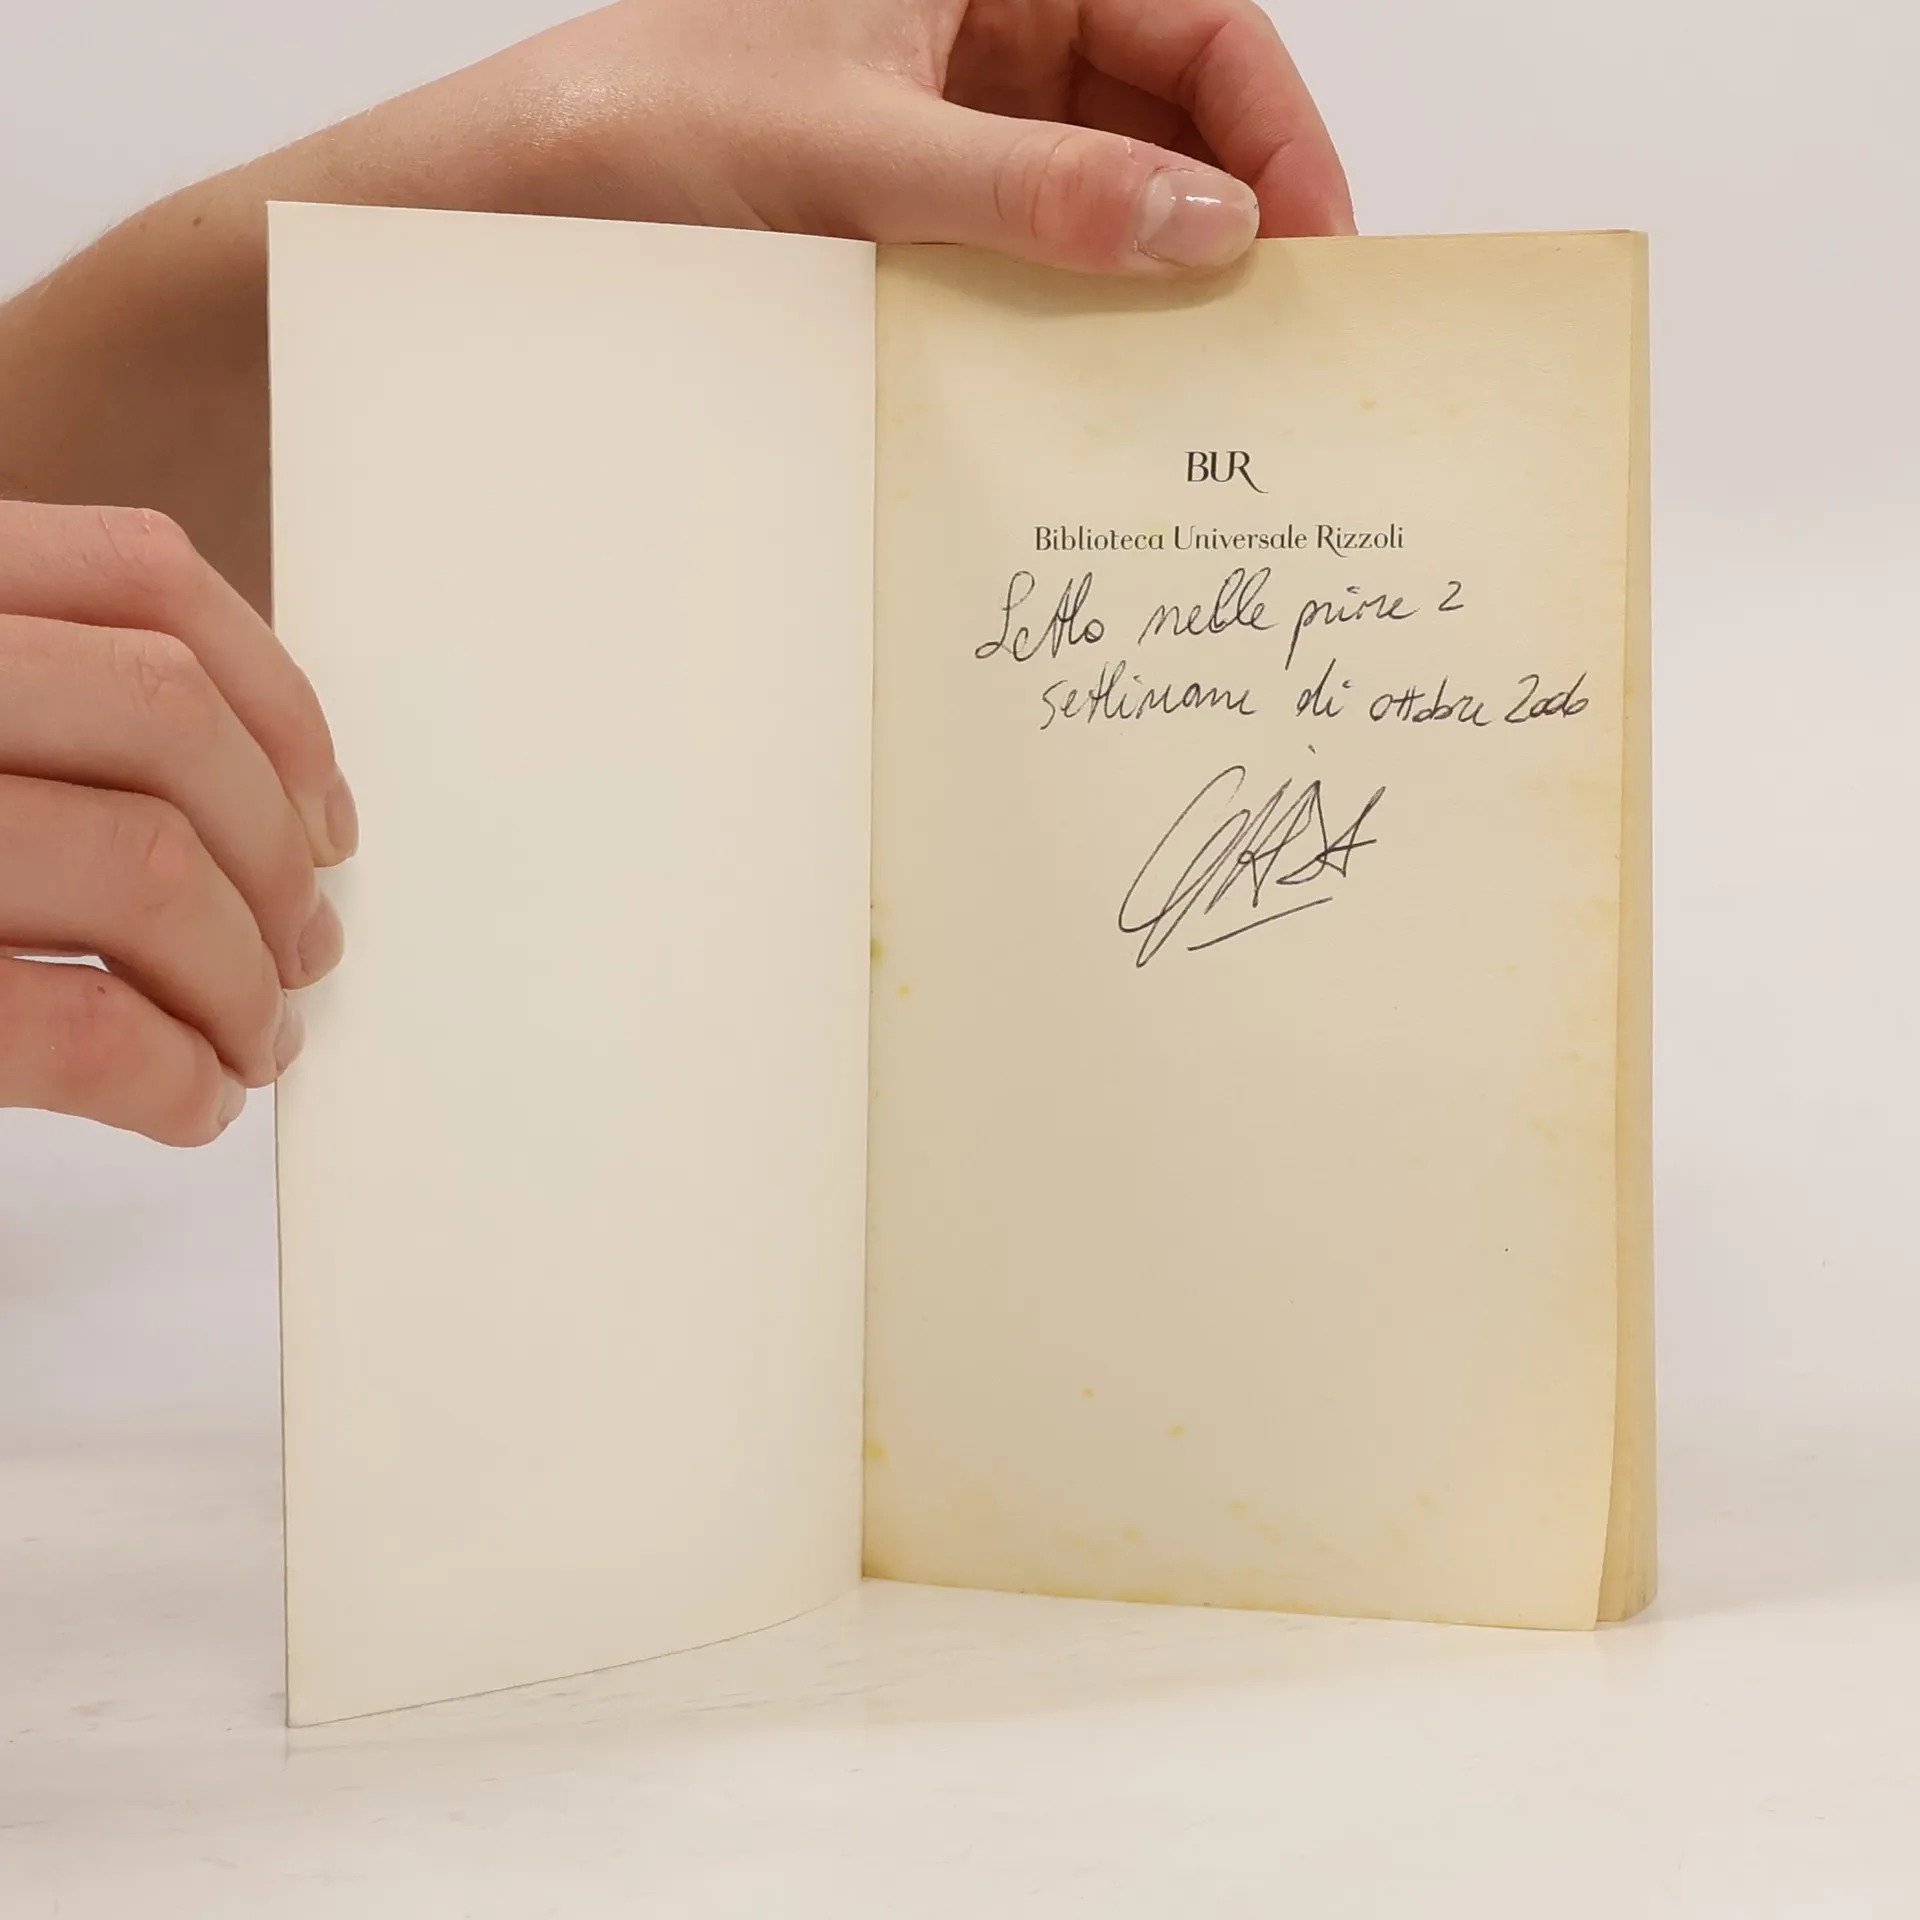 BUR
Biblioteca Universale Rizzoli
Letto nelle prime 2
settimane di ottobre 2006